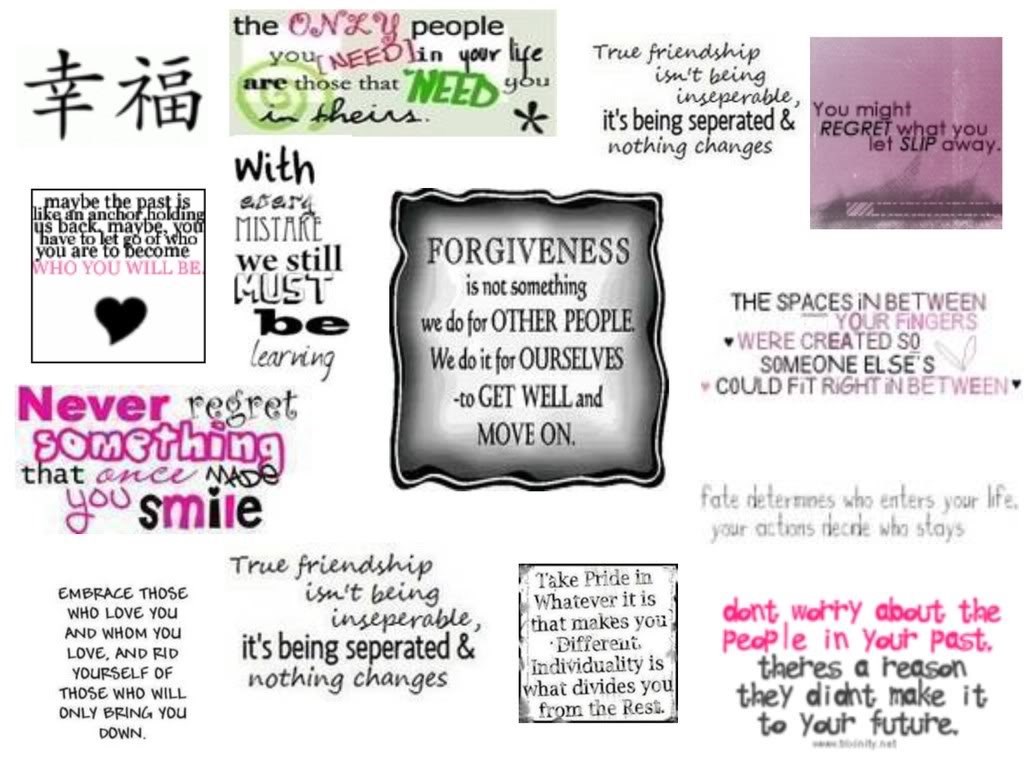 幸福
the ONLY people
you [NEED] in your life
are those that NEED you
in theirs. *
True friendship
isn't being
inseperable,
it's being seperated &
nothing changes
You might
REGRET what you
let SLIP away.
maybe the past is
like an anchor holding
us back, maybe, you
have to let go of who
you are to become
WHO YOU WILL BE.
With
every
MISTAKE
we still
MUST
be
learning
FORGIVENESS
is not something
we do for OTHER PEOPLE.
We do it for OURSELVES
-to GET WELL and
MOVE ON.
THE SPACES iN BETWEEN
YOUR FiNGERS
♥ WERE CREATED SO
SOMEONE ELSE'S
♥ COULD FiT RiGHT iN BETWEEN ♥
Never regret
something
that once MADE
you smile
fate determines who enters your life,
your actions decide who stays
EMBRACE THOSE
WHO LOVE YOU
AND WHOM YOU
LOVE, AND RID
YOURSELF OF
THOSE WHO WILL
ONLY BRING YOU
DOWN.
True friendship
isn't being
inseperable,
it's being seperated &
nothing changes
Take Pride in
Whatever it is
that makes you
Different,
Individuality is
what divides you
from the Rest.
dont worry about the
people in your past,
theres a reason
they didnt make it
to your future.